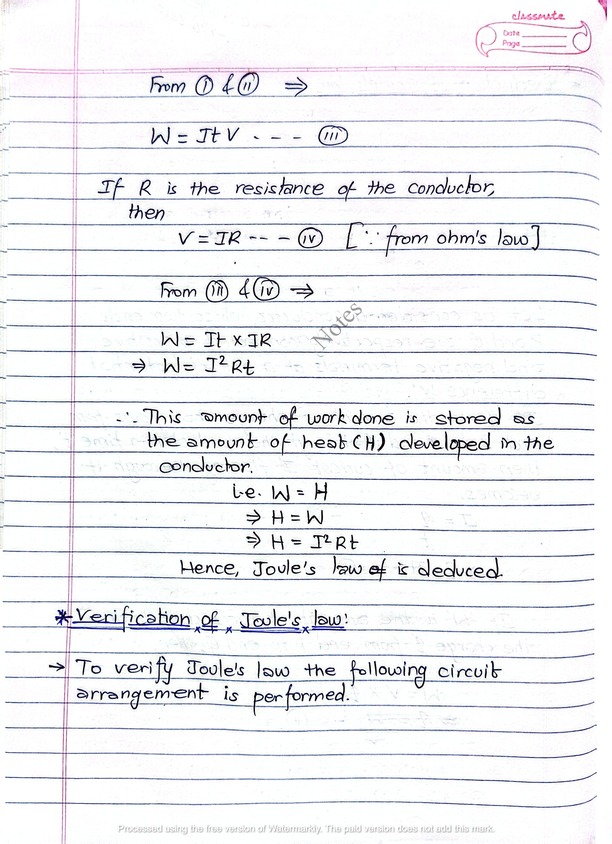 classmate
Date
Page
From (i) & (ii) ⇒
W = ItV - - - (iii)
If R is the resistance of the conductor,
then
V = IR - - - (iv) [∵ from ohm's law]
From (iii) & (iv) ⇒
Notes
W = It × IR
⇒ W = I²Rt
∴ This amount of work done is stored as
the amount of heat (H) developed in the
conductor.
i.e. W = H
⇒ H = W
⇒ H = I²Rt
Hence, Joule's law of is deduced.
* Verification of Joule's law:
→ To verify Joule's law the following circuit
arrangement is performed.
Processed using the free version of Watermarkly. The paid version does not add this mark.